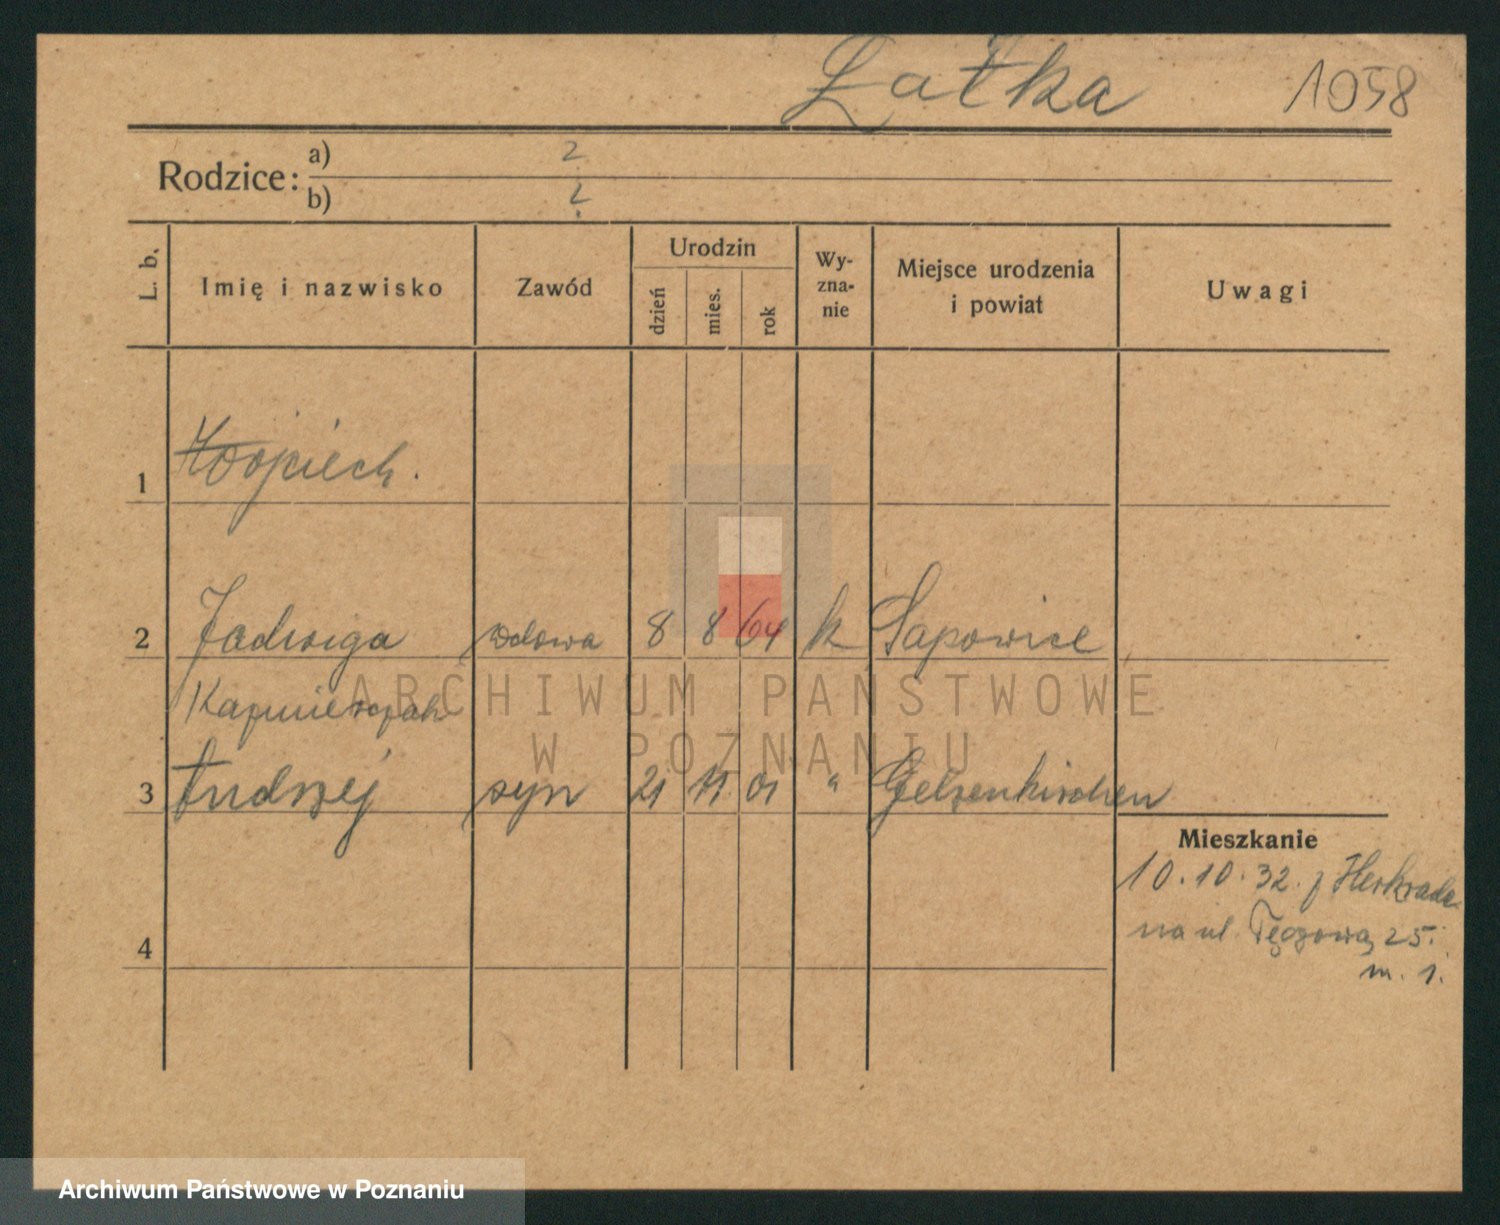 Łatka 1058
Rodzice:
a) ?
b) ?
L. b.
Imię i nazwisko
Zawód
Urodzin
dzień
mies.
rok
Wy-
zna-
nie
Miejsce urodzenia
i powiat
Uwagi
1 Wojciech.
2 Jadwiga wdowa 8 8 64 k Sapowice
Kaźmierczak
3 Andrzej syn 21 11 01 " Gelsenkirchen
4
Mieszkanie
10.10.32. z
na ul Tęczową 25.
m. 1.
ARCHIWUM PAŃSTWOWE
W POZNANIU
Archiwum Państwowe w Poznaniu